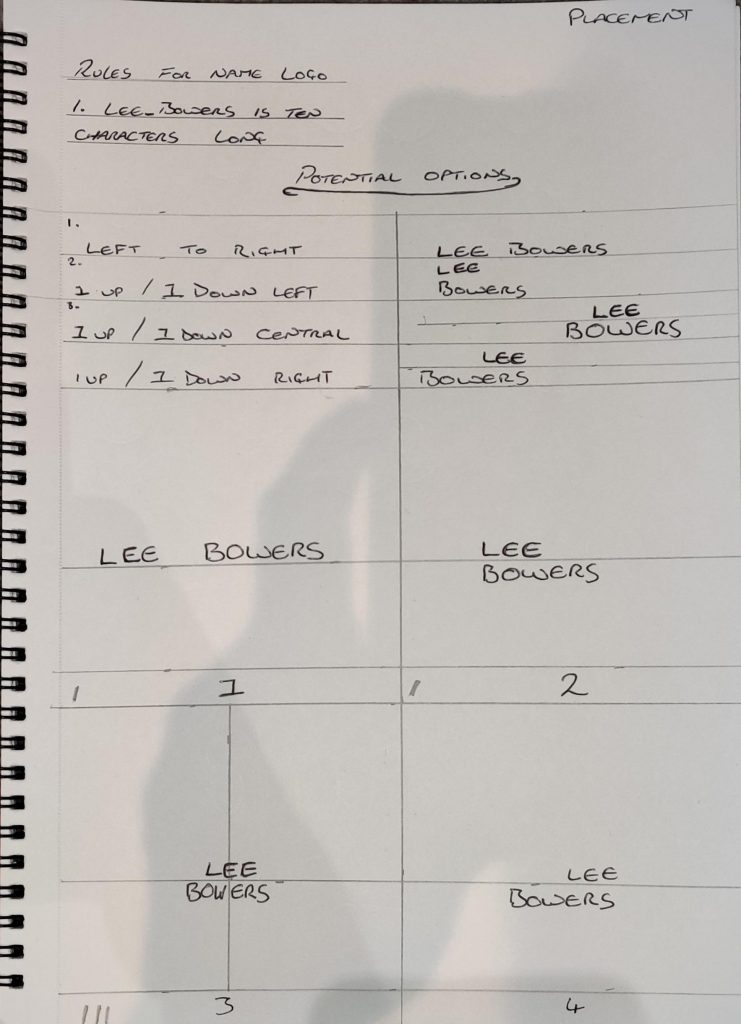 PLACEMENT
RULES FOR NAME LOGO
1. LEE_BOWERS IS TEN
CHARACTERS LONG
POTENTIAL OPTIONS
1.
LEFT TO RIGHT
LEE BOWERS
2.
1 UP / 1 DOWN LEFT
LEE
BOWERS
3.
1 UP / 1 DOWN CENTRAL
LEE
BOWERS
1 UP / 1 DOWN RIGHT
LEE
BOWERS
LEE BOWERS
LEE
BOWERS
I
1
I
2
LEE
BOWERS
LEE
BOWERS
III
3
4